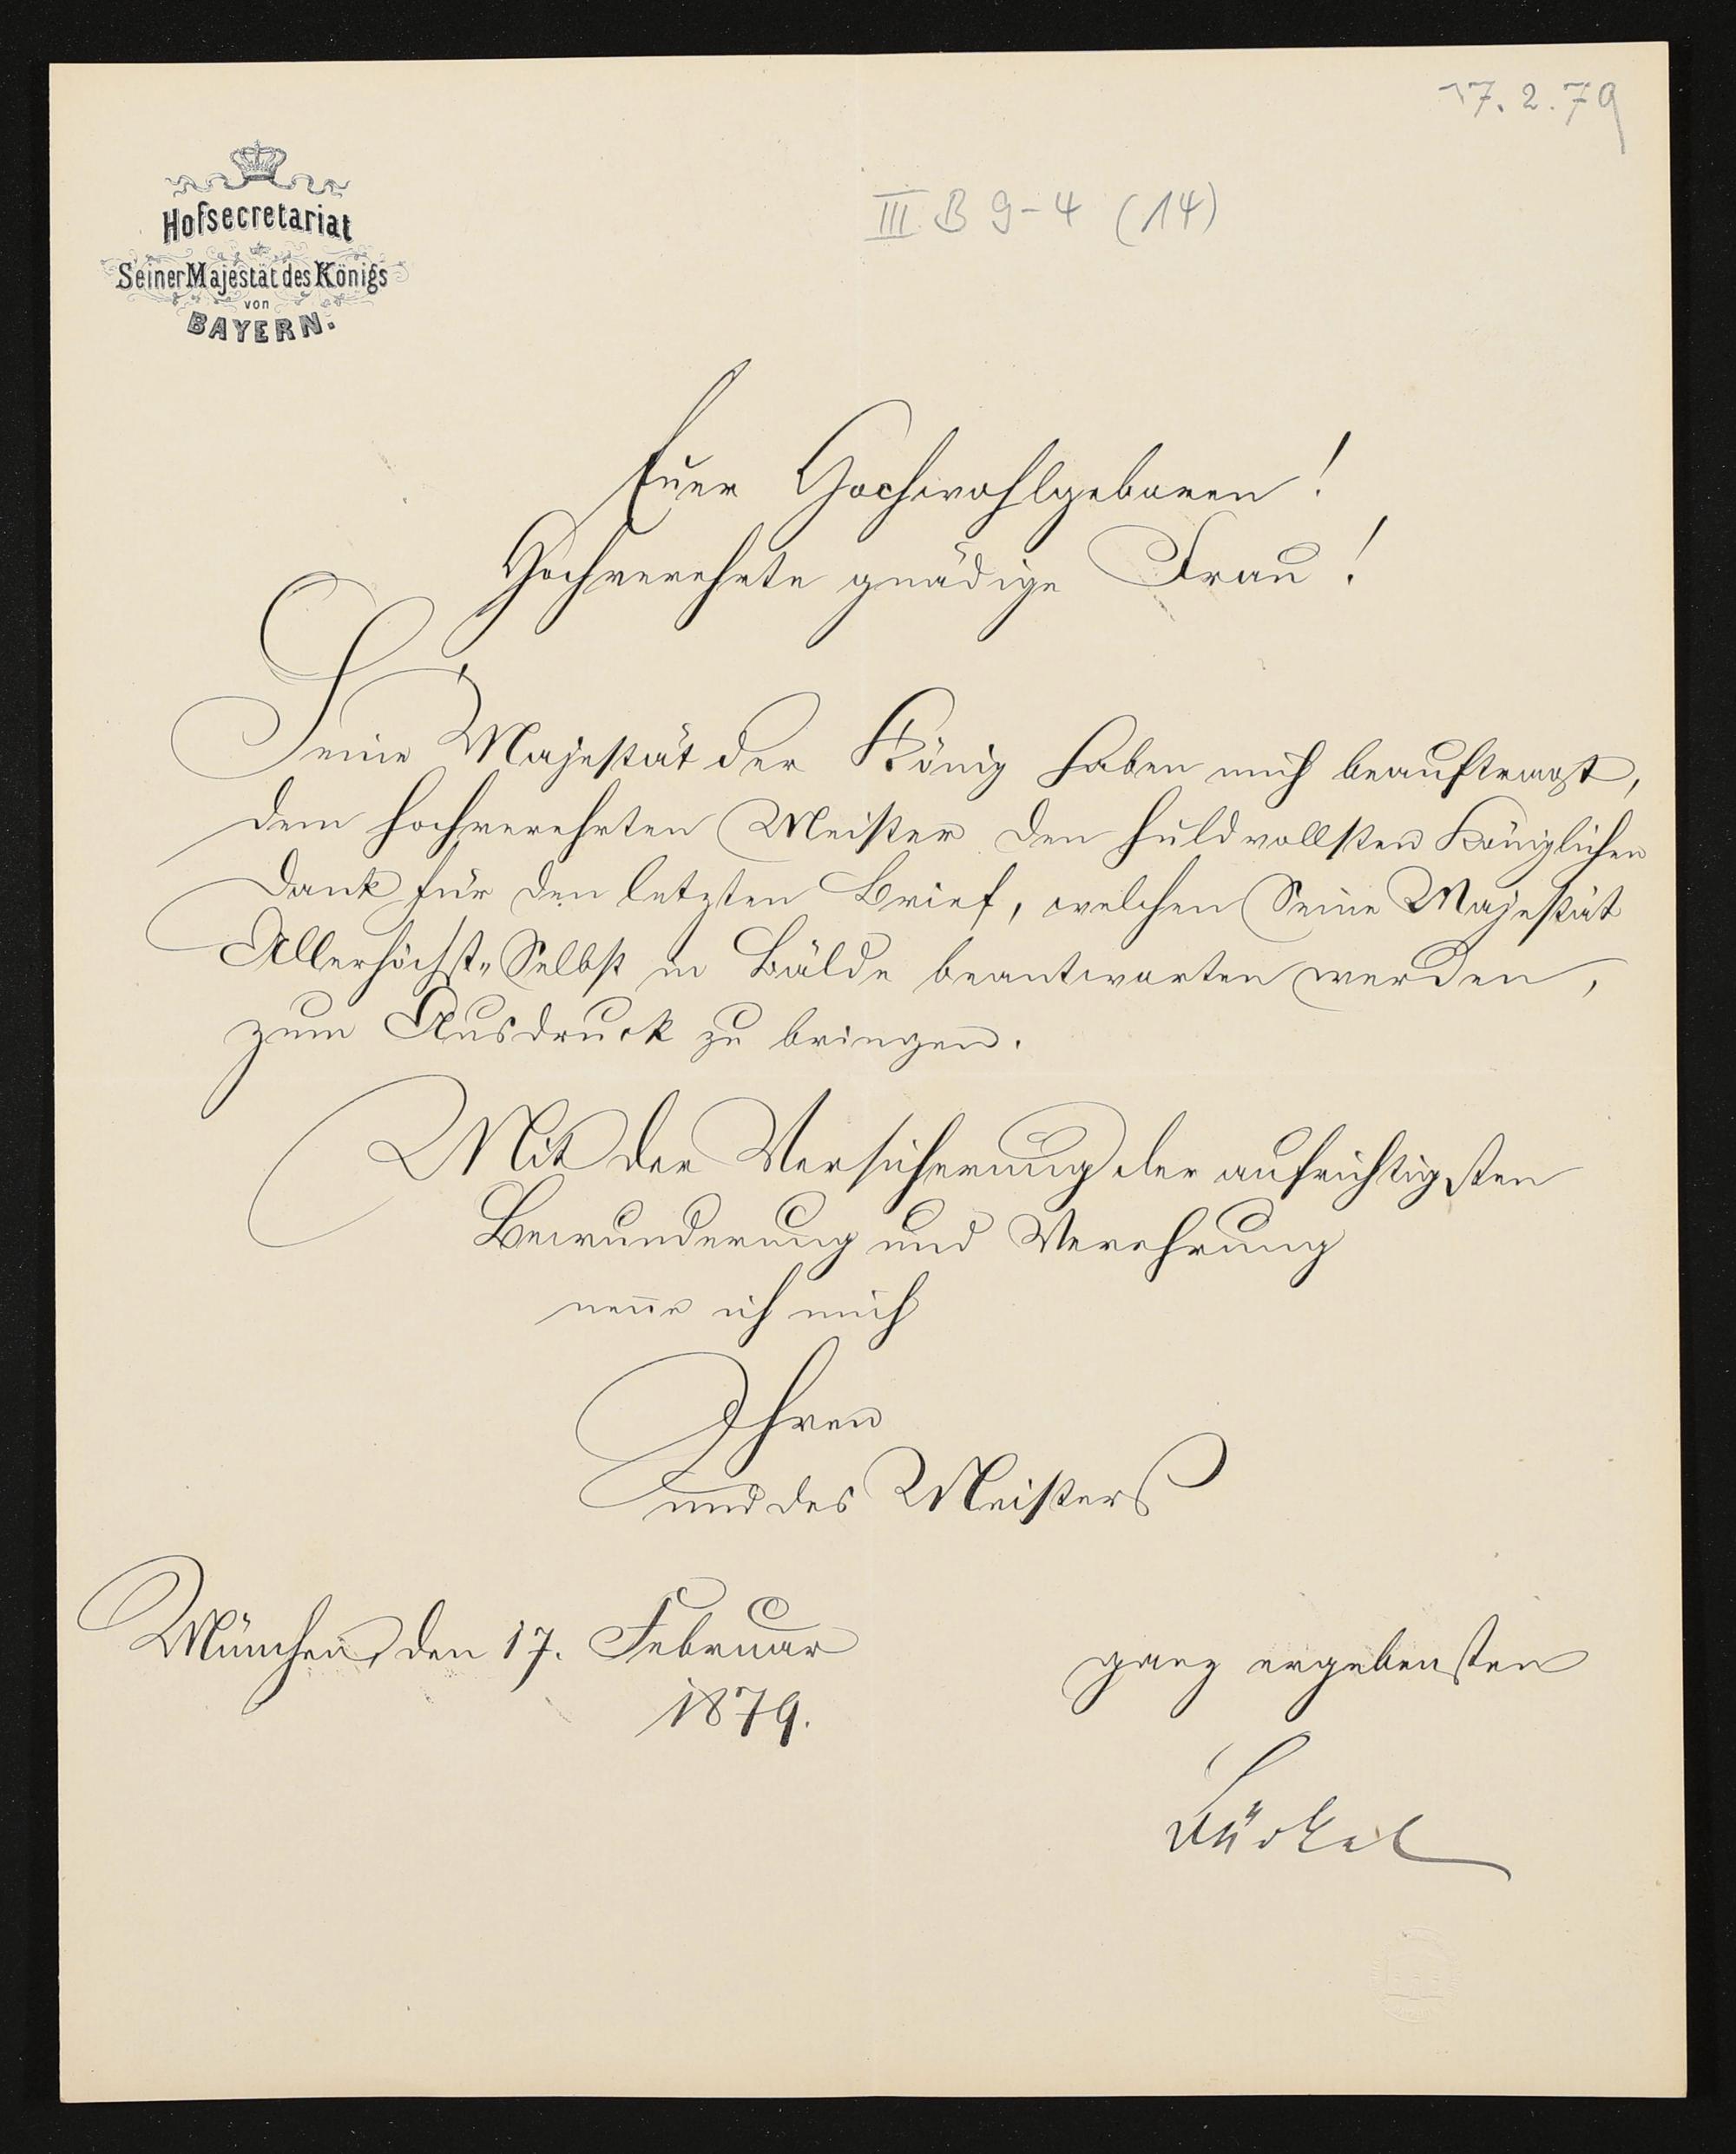 17. 2. 79
III B 9-4 (14)
Hofsecretariat
Seiner Majestät des Königs
von
BAYERN.
Euer Hochwohlgeboren!
Hochverehrte gnädige Frau!
Seine Majestät der König haben mich beauftragt,
dem hochverehrten Meister den huldvollsten Königlichen
Dank für den letzten Brief, welchen Seine Majestät
Allerhöchst-Selbst in Bälde beantworten werden,
zum Ausdruck zu bringen.
Mit der Versicherung der aufrichtigsten
Bewunderung und Verehrung
nenne ich mich
Ihren
und des Meisters
München, den 17. Februar
1879.
ganz ergebensten
Bürkel